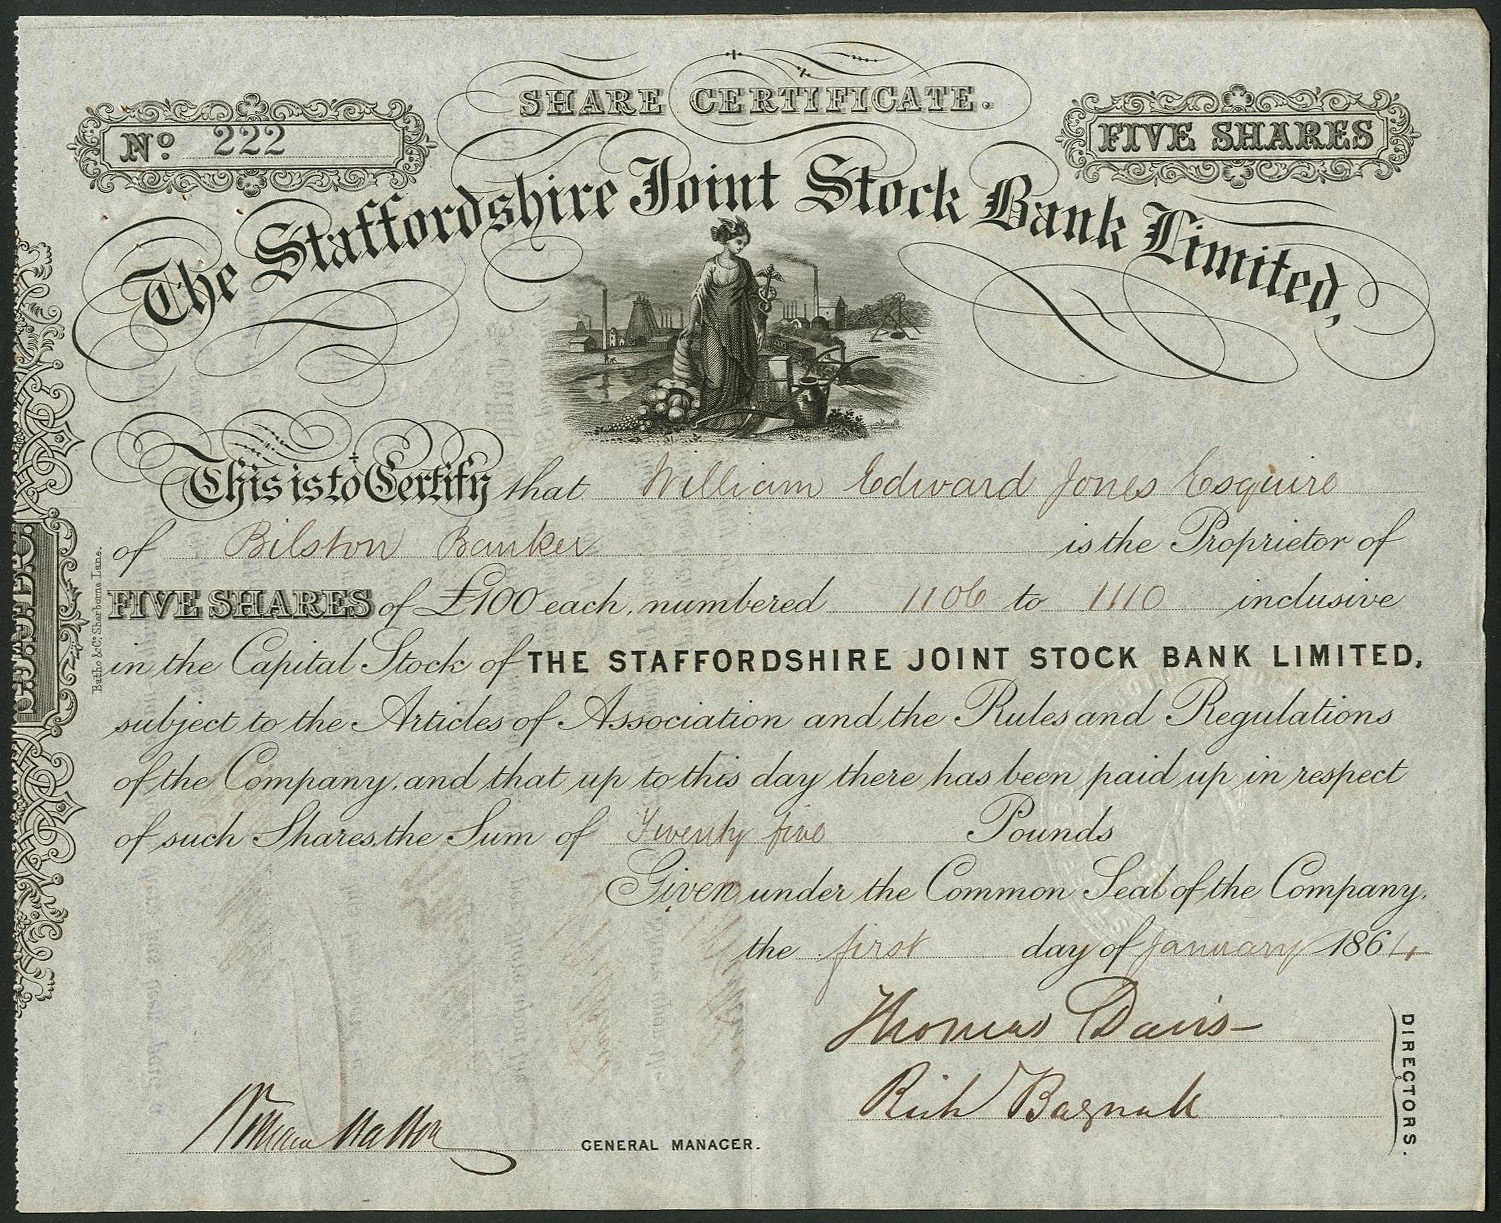 SHARE CERTIFICATE.
No. 222
FIVE SHARES
The Staffordshire Joint Stock Bank Limited,
This is to Certify that William Edward Jones Esquire
of Bilston Banker is the Proprietor of
FIVE SHARES of £100 each, numbered 1106 to 1110 inclusive
in the Capital Stock of THE STAFFORDSHIRE JOINT STOCK BANK LIMITED,
subject to the Articles of Association and the Rules and Regulations
of the Company, and that up to this day there has been paid up in respect
of such Shares, the Sum of Twenty five Pounds
Given under the Common Seal of the Company,
the first day of January 1864
Thomas Davis
Rich Bagnall
DIRECTORS.
William GENERAL MANAGER.
Batho & Co. Sherborne Lane.